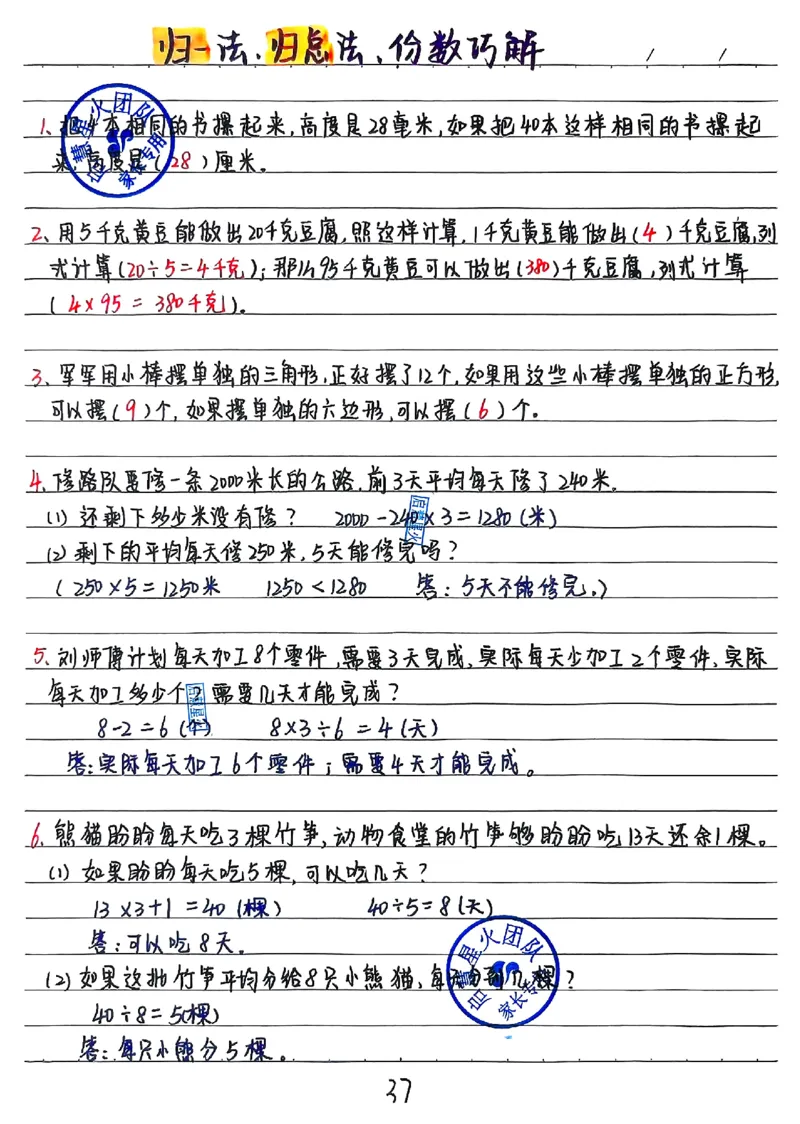 归一法、归总法、份数巧解
1、把4本相同的书摞起来,高度是28毫米,如果把40本这样相同的书摞起
来,高度是(28)厘米。
启慧星火团队
家长专用
2、用5千克黄豆能做出20千克豆腐,照这样计算,1千克黄豆能做出(4)千克豆腐,列
式计算(20÷5=4千克);那么95千克黄豆可以做出(380)千克豆腐,列式计算
(4×95=380千克)。
3、军军用小棒摆单独的三角形,正好摆了12个,如果用这些小棒摆单独的正方形,
可以摆(9)个,如果摆单独的六边形,可以摆(6)个。
4、修路队要修一条2000米长的公路,前3天平均每天修了240米.
(1)还剩下多少米没有修? 2000-240×3=1280(米)
(2)剩下的平均每天修250米,5天能修完吗?
(250×5=1250米 1250<1280 答:5天不能修完。)
5、刘师傅计划每天加工8个零件,需要3天完成,实际每天少加工2个零件,实际
每天加工多少个?需要几天才能完成?
8-2=6(个) 8×3÷6=4(天)
答:实际每天加工6个零件;需要4天才能完成。
6、熊猫盼盼每天吃3棵竹笋,动物食堂的竹笋够盼盼吃13天还余1棵。
(1)如果盼盼每天吃5棵,可以吃几天?
13×3+1=40(棵) 40÷5=8(天)
答:可以吃8天.
(2)如果这批竹笋平均分给8只小熊猫,每只分到几棵?
启慧星火团队
家长专用
40÷8=5(棵)
答:每只小熊分5棵。
37